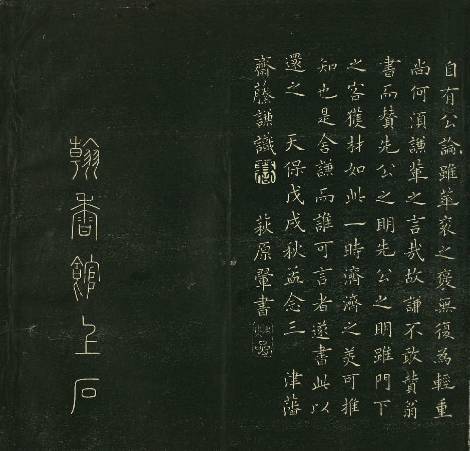 自有公論雖華袞之襃無復為輕重
尚何須謙輩之言哉故謙不敢賛翁
書而賛先公之明先公之明雖門下
之客獲材如此一時濟濟之美可推
知也是舍謙而誰可言者遂書此以
還之 天保戊戌秋孟念三 津藩
齋藤謙識 萩原翬書
翰香館上石